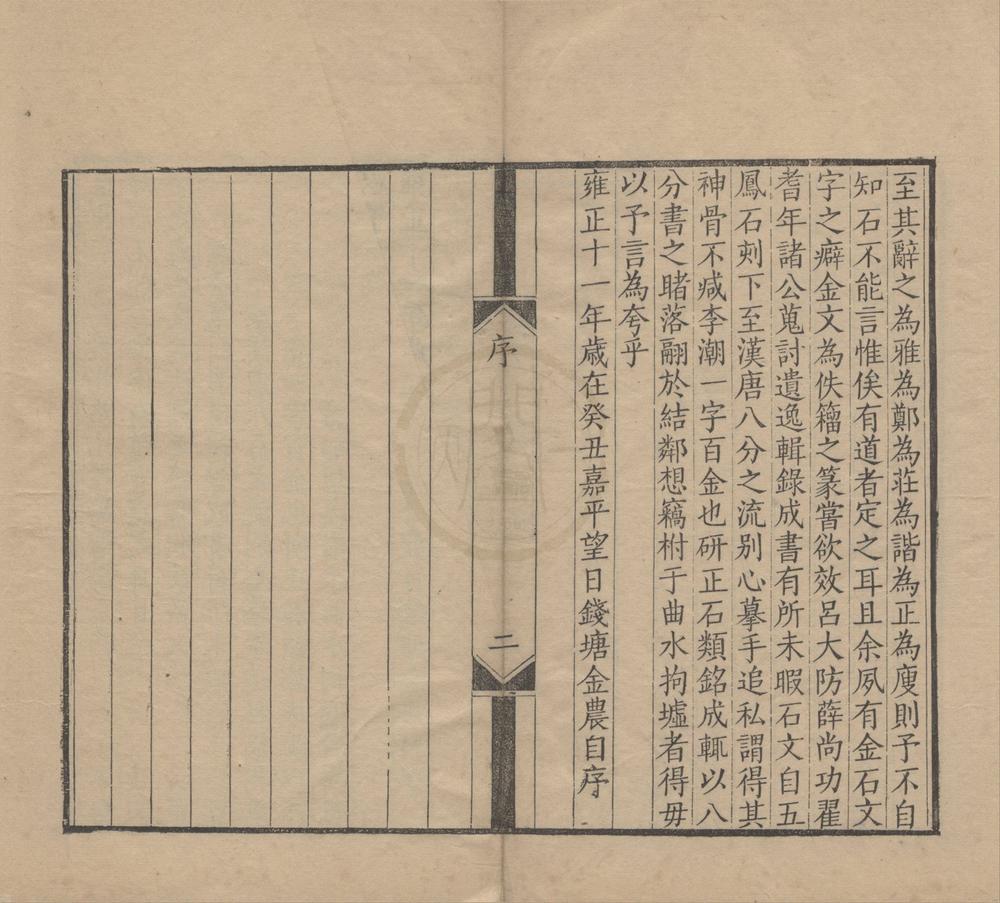 至其辭之為雅為鄭為莊為諧為正為廋則予不自
知石不能言惟俟有道者定之耳且余夙有金石文
字之癖金文為佚籒之篆嘗欲效呂大防薛尚功翟
耆年諸公蒐討遺逸輯錄成書有所未暇石文自五
鳳石刻下至漢唐八分之流别心摹手追私謂得其
神骨不减李潮一字百金也研正石類銘成輒以八
分書之睹落翮於結鄰想竊柎于曲水拘墟者得毋
以予言為夸乎
雍正十一年歳在癸丑嘉平望日錢塘金農自序
序
二